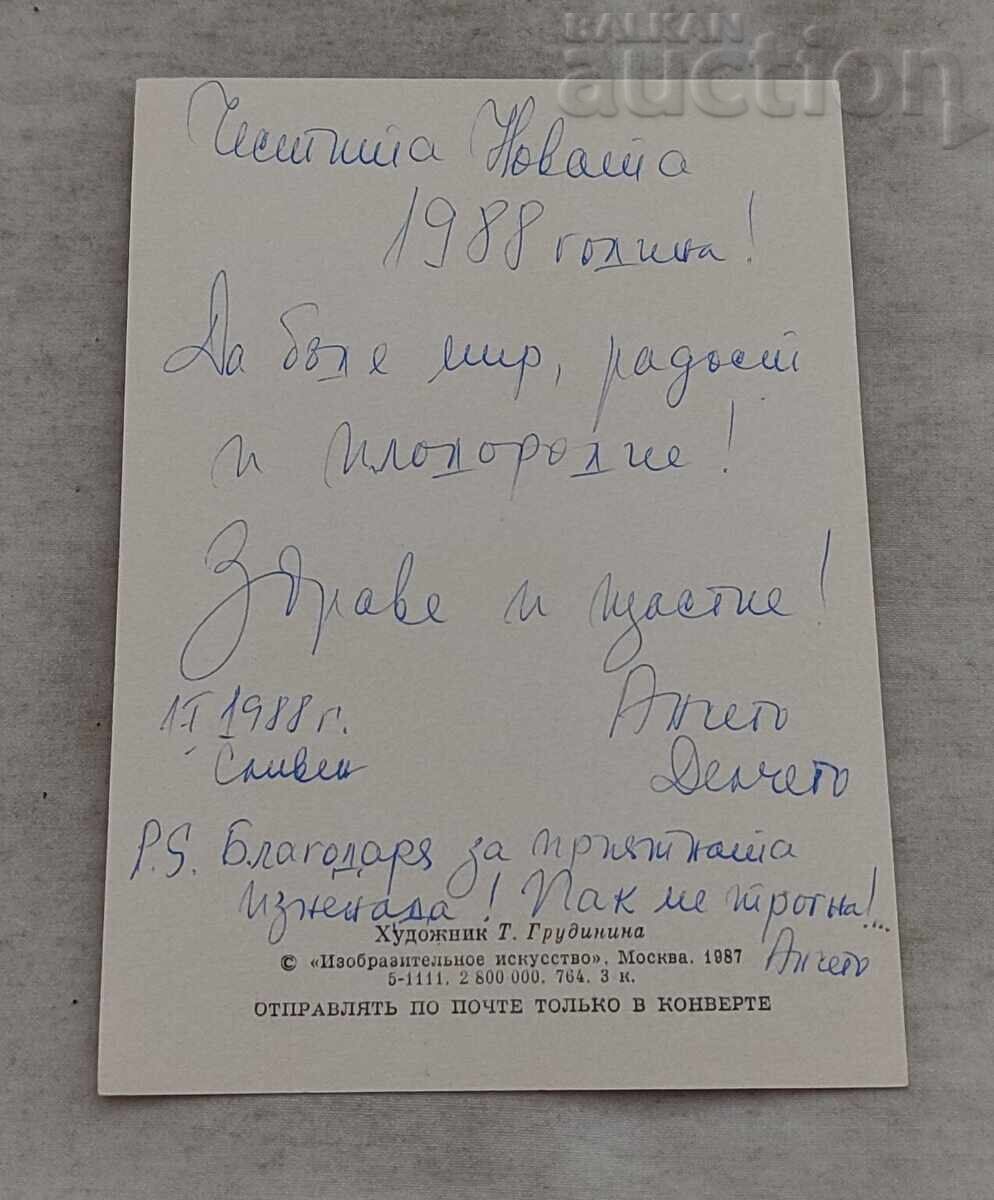 BALKAN
auction
Честита Новата
1988 година!
Да бъде мир, радост
и плодородие!
Здраве и щастие!
1.I 1988 г.
Анчето
Сливен
Денчето
P.S. Благодаря за приятната
изненада! Пак ме трогна!...
Художник Т. Грудинина
© «Изобразительное искусство», Москва. 1987
Анчето
5-1111. 2 800 000. 764. 3 к.
ОТПРАВЛЯТЬ ПО ПОЧТЕ ТОЛЬКО В КОНВЕРТЕ